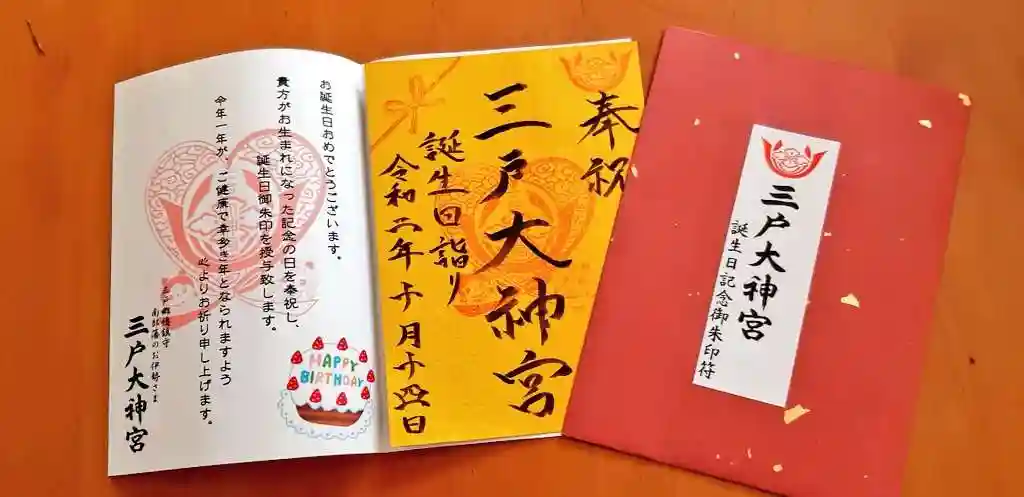 お誕生日おめでとうございます。
貴方がお生まれになった記念の日を奉祝し、
誕生日御朱印を授与致します。
今年一年が、ご健康で幸多き年となられますよう
心よりお祈り申し上げます。
三戸郷総鎮守
南部藩のお伊勢さま
三戸大神宮
HAPPY
BIRTHDAY
奉祝
三戸大神宮
誕生日詣り
令和六年十月十四日
三戸大神宮
誕生日記念御朱印符